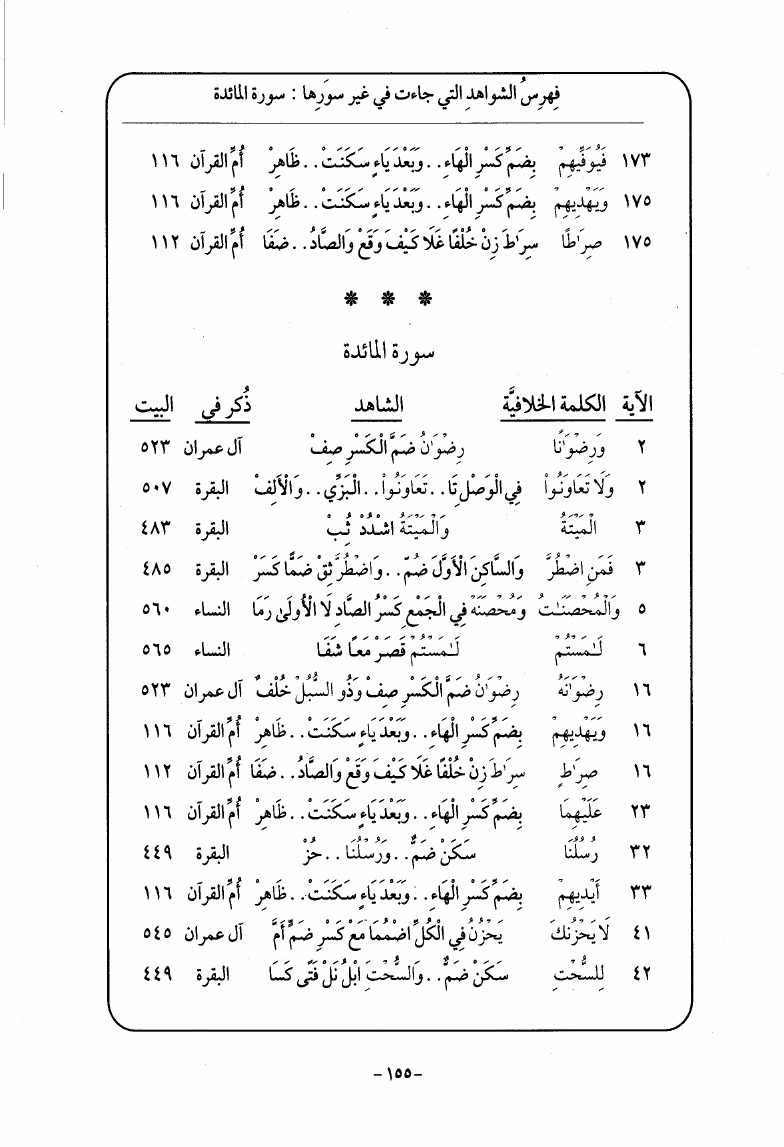 فهرسُ الشواهدِ التي جاءت في غير سوَرِها : سورة المائدة
١٧٣ فَيُوَفِّيهِمْ بِضَمِّ كَسْرِ الْهَاءِ..وَبَعْدَ يَاءٍ سَكَنَتْ..ظَاهِرْ أُمّ القرآن ١١٦
١٧٥ وَيَهْدِيهِمْ بِضَمِّ كَسْرِ الْهَاءِ..وَبَعْدَ يَاءٍ سَكَنَتْ..ظَاهِرْ أُمّ القرآن ١١٦
١٧٥ صِرَٰطًا سِرَٰطَ زِنْ خُلْفًا غَلَا كَيْفَ وَقَعْ وَالصَّادُ..ضَفَا أُمّ القرآن ١١٢
* * *
سورة المائدة
الآية الكلمة الخلافيَّة الشاهد ذُكر في البيت
٢ وَرِضْوَٰنًا رِضْوَٰنُ ضَمَّ الْكَسْرِ صِفْ آل عمران ٥٢٣
٢ وَلَا تَعَاوَنُواْ فِي الْوَصْلِ تَا..تَعَاوَنُواْ..الْبَزِّي..وَالْأَلِفْ البقرة ٥٠٧
٣ الْمَيْتَةُ وَالْمَيْتَةُ اشْدُدْ ثُبْ البقرة ٤٨٣
٣ فَمَنِ اضْطُرَّ وَالسَّاكِنَ الْأَوَّلَ ضُمّ..وَاضْطُرَّ ثِقْ ضَمًّا كَسَرْ البقرة ٤٨٥
٥ وَالْمُحْصَنَـٰتُ وَمُحْصَنَهْ فِي الْجَمْعِ كَسْرُ الصَّادِ لَا الْأُولَىٰ رَمَا النساء ٥٦٠
٦ لَـٰمَسْتُمُ لَـٰمَسْتُمُ قَصْرٌ مَعًا شَفَا النساء ٥٦٥
١٦ رِضْوَٰنَهُ رِضْوَٰنُ ضَمَّ الْكَسْرِ صِفْ وَذُو السُّبُلْ خُلْفٌ آل عمران ٥٢٣
١٦ وَيَهْدِيهِمْ بِضَمِّ كَسْرِ الْهَاءِ..وَبَعْدَ يَاءٍ سَكَنَتْ..ظَاهِرْ أُمّ القرآن ١١٦
١٦ صِرَٰطٍ سِرَٰطَ زِنْ خُلْفًا غَلَا كَيْفَ وَقَعْ وَالصَّادُ..ضَفَا أُمّ القرآن ١١٢
٢٣ عَلَيْهِمَا بِضَمِّ كَسْرِ الْهَاءِ..وَبَعْدَ يَاءٍ سَكَنَتْ..ظَاهِرْ أُمّ القرآن ١١٦
٣٢ رُسُلُنَا سَكَنْ ضَمٌّ..وَرُسْلُنَا..حُزْ البقرة ٤٤٩
٣٣ أَيْدِيهِمْ بِضَمِّ كَسْرِ الْهَاءِ..وَبَعْدَ يَاءٍ سَكَنَتْ..ظَاهِرْ أُمّ القرآن ١١٦
٤١ لَا يَحْزُنكَ يَحْزُنُ فِي الْكُلِّ اضْمُمَا مَعْ كَسْرِ ضَمٍّ أَمَّ آل عمران ٥٤٥
٤٢ لِلسُّحْتِ سَكَنْ ضَمٌّ..وَالسُّحْتِ ابْلُ نَلْ فَتًى كَسَا البقرة ٤٤٩
-١٥٥-